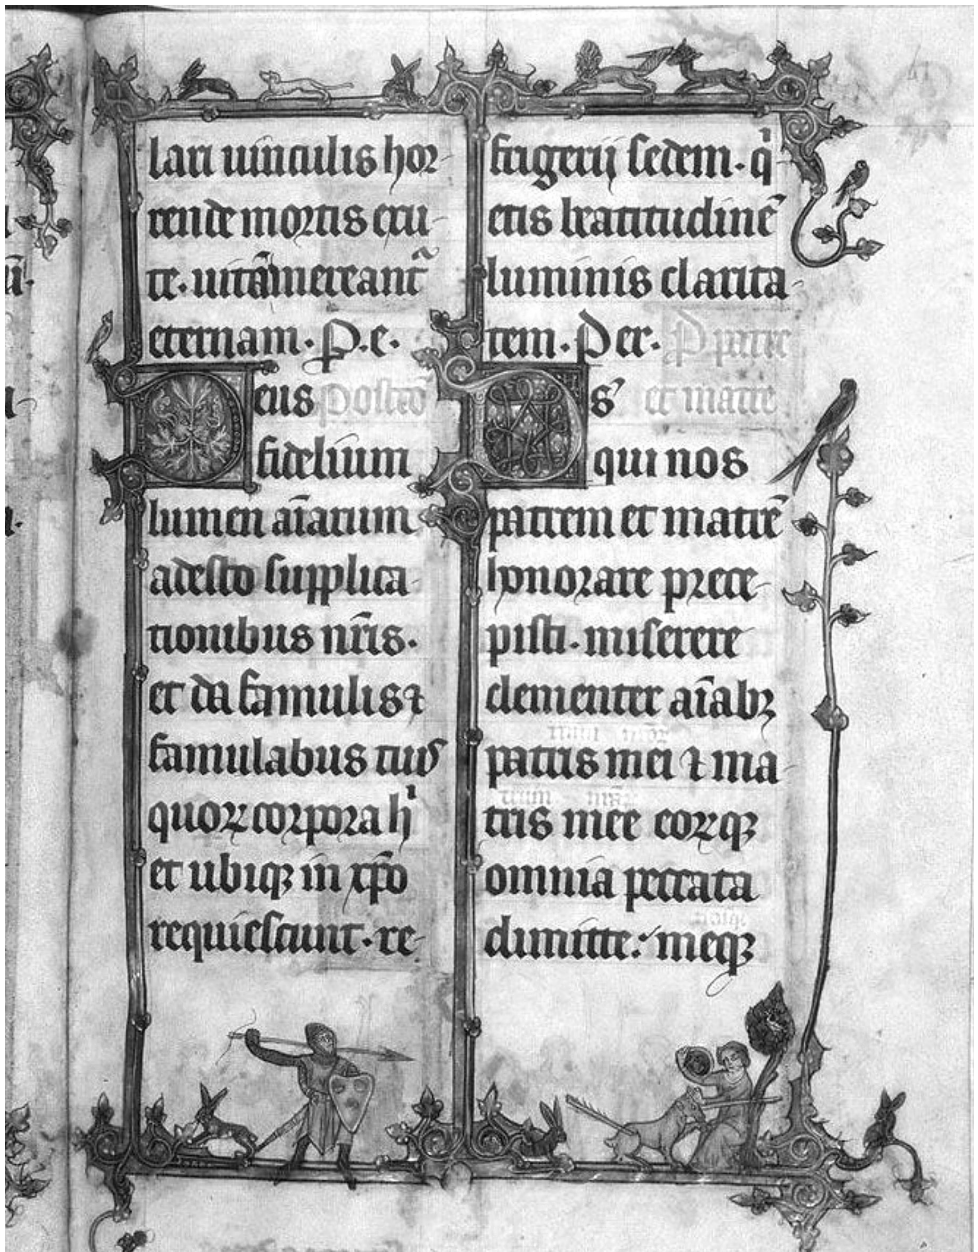 lari uinculis hor-
rende mortis exu-
te. uitam mereant᷑
eternam. P. e.
Deus Postco᷑
fidelium
lumen aīarum
adesto supplica-
tionibus nr̄is.
et da famulis ⁊
famulabus tuis
quoꝝ corpora hi᷑
et ubiqꝫ in xp̄o
requiescunt. re-
frigerij sedem. qi᷑
etis beatitudinē
luminis clarita-
tem. Per. P patre
Ds᷑ et matre
qui nos
patrem et matrē
honorare prece-
pisti. miserere
clementer aīabꝫ
patris mei ⁊ ma-
tris mee eoꝝqꝫ
omnia peccata
dimitte: meqꝫ